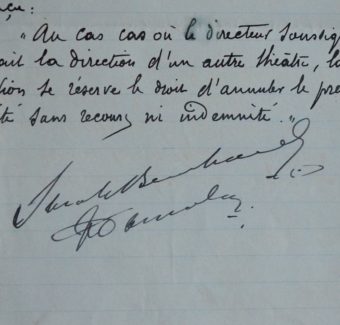 nçu:
"Au cas cas où le directeur soussig
ait la direction d'un autre théâtre, la
tion se réserve le droit d'annuler le pré
té sans recours ni indemnité."
Sarah Bernhardt